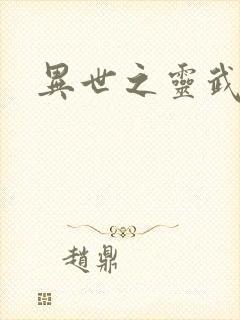 異世之靈武
趙鼎